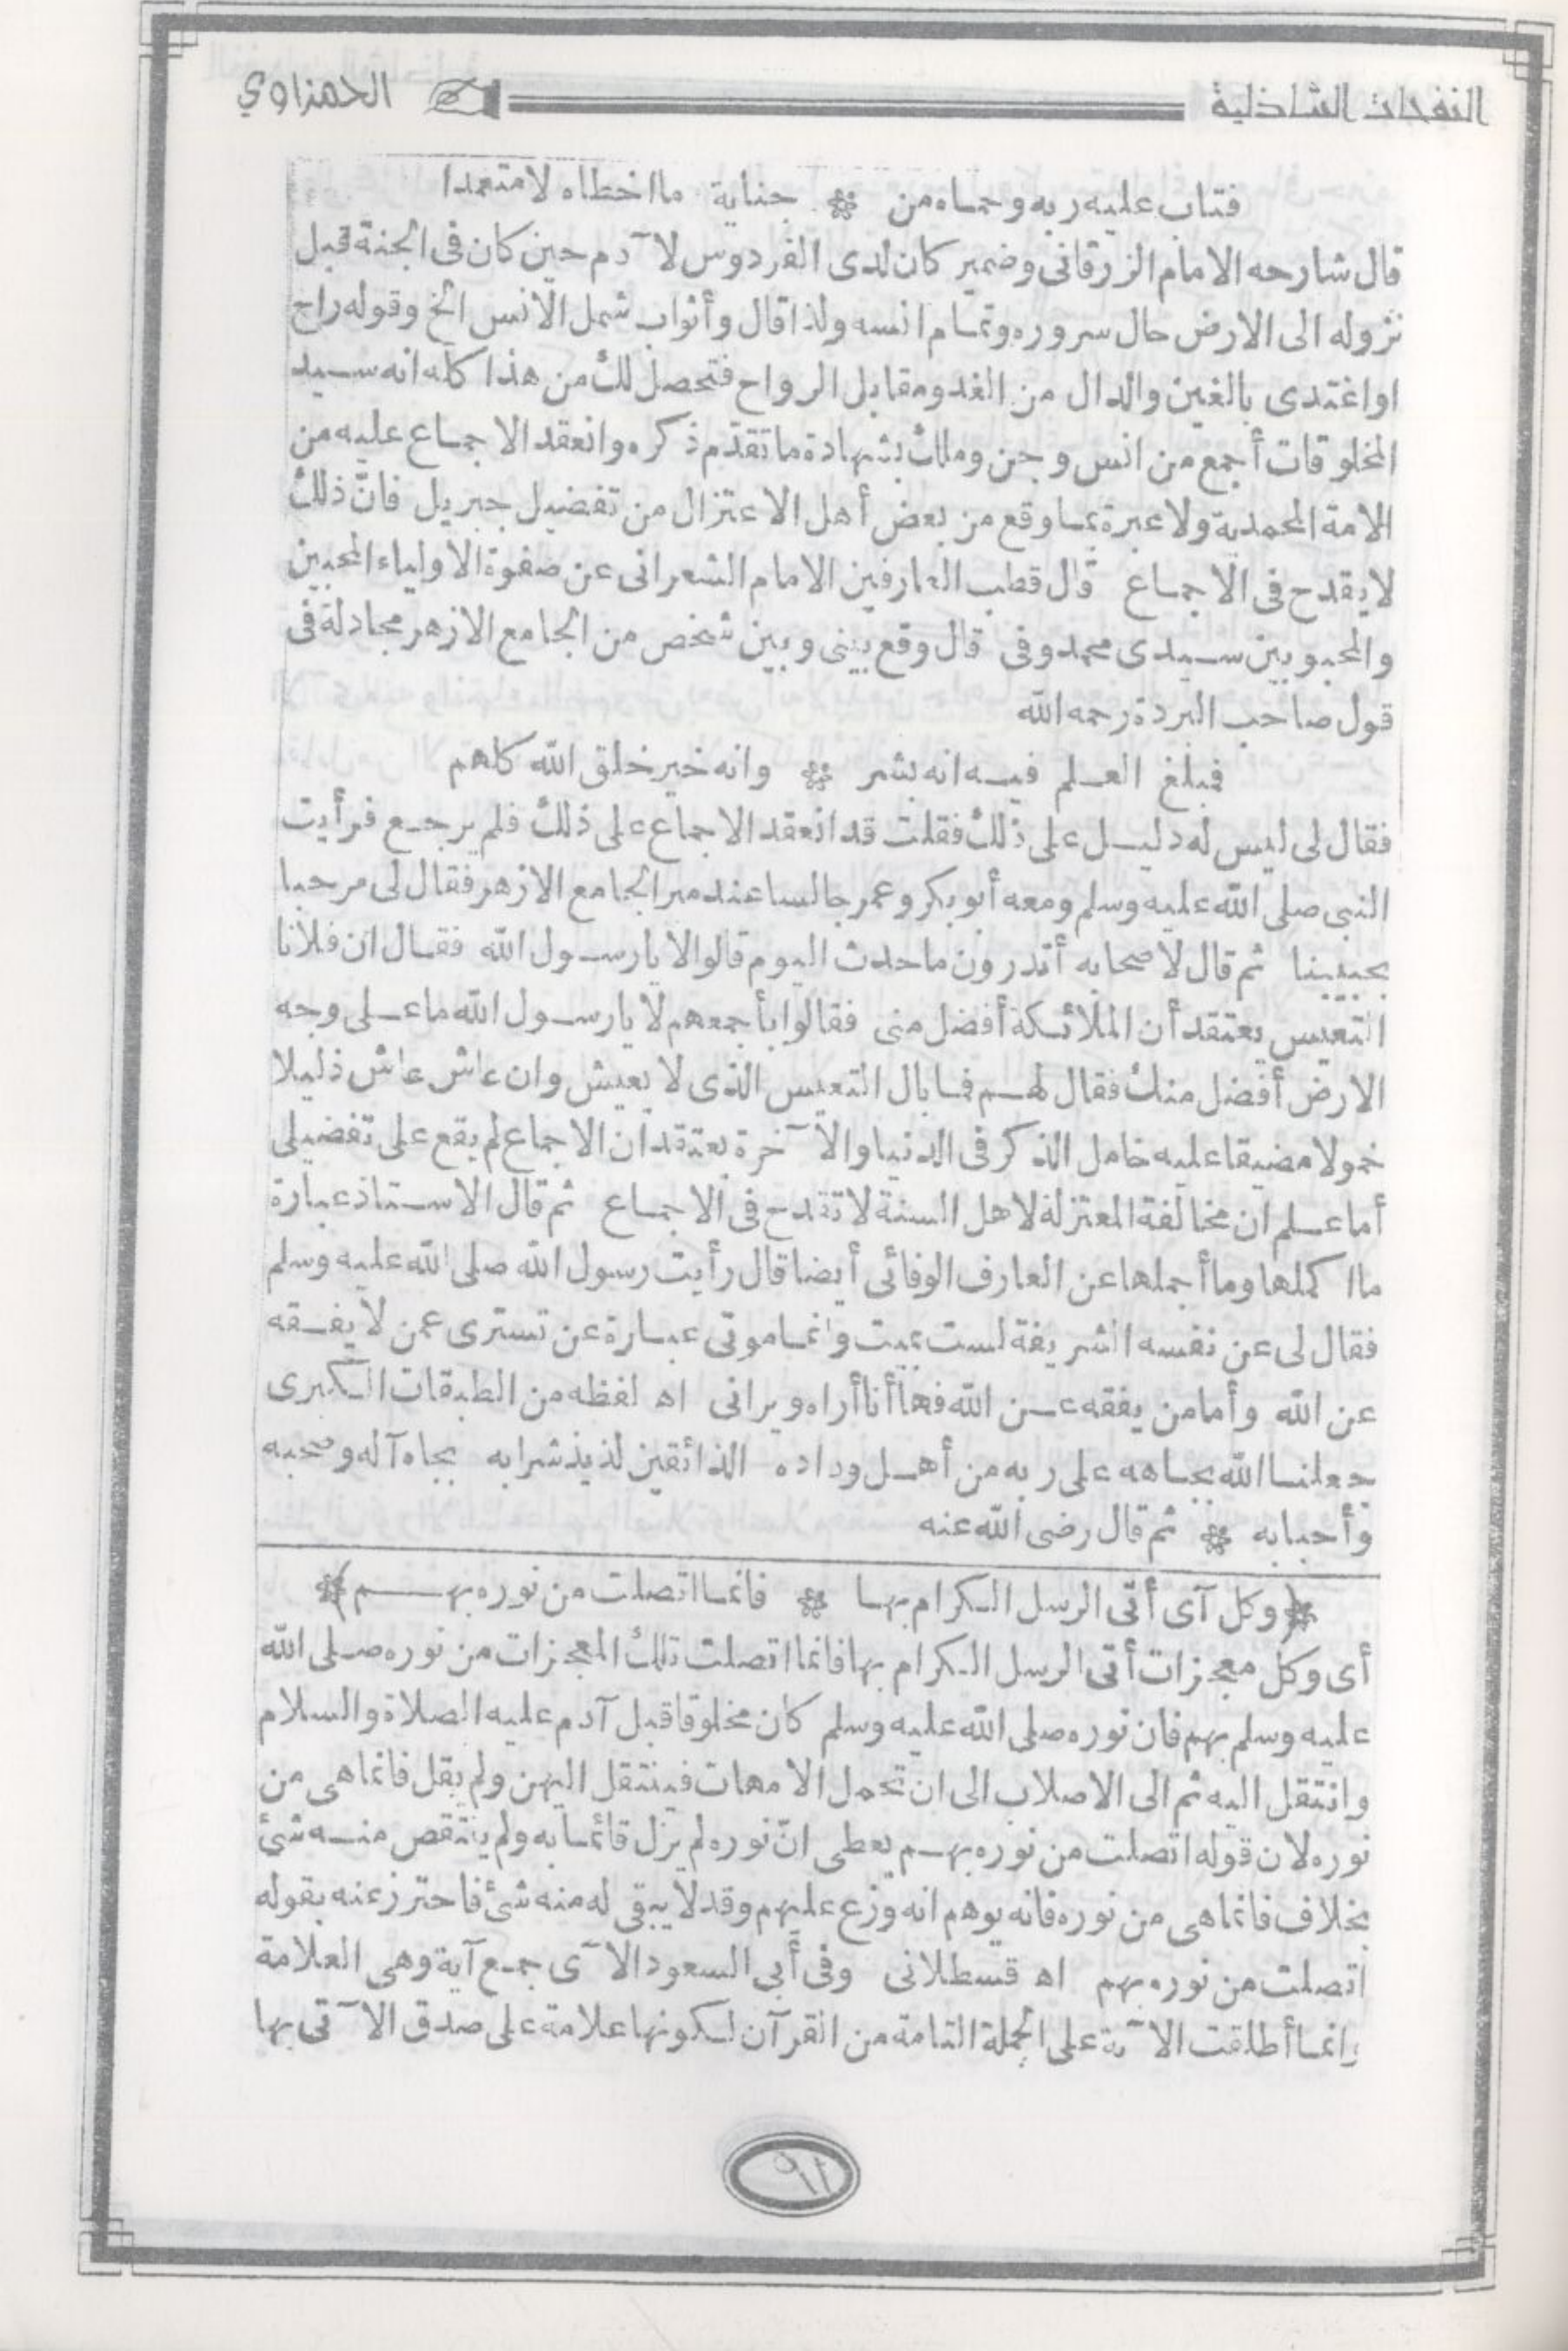 النفحات الشاذلية الحمزاوي
فتاب عليه ربه وحماه من ❊ جناية ما اخطاه لا متعمدا
قال شارحه الامام الزرقانى وضمير كان لدى الفردوس لآدم حين كان فى الجنة قبل
نزوله الى الارض حال سروره وتمام انسه ولذا قال وأثواب شمل الانس الخ وقوله راح
او اغتدى بالغين والدال من الغدو مقابل الرواح فتحصل لك من هذا كله انه سيد
المخلوقات أجمع من انس وجن وملك بشهادة ما تقدّم ذكره وانعقد الاجماع عليه من
الامة المحمدية ولا عبرة بما وقع من بعض أهل الاعتزال من تفضيل جبريل فانّ ذلك
لا يقدح فى الاجماع قال قطب العارفين الامام الشعرانى عن صفوة الاولياء المحبين
والمحبوبين سيدى محمد وفى قال وقع بينى وبين شخص من الجامع الازهر مجادلة فى
قول صاحب البردة رحمه الله
فبلغ العلم فيه انه بشر ❊ وانه خير خلق الله كلهم
فقال لى ليس له دليل على ذلك فقلت قد انعقد الاجماع على ذلك فلم يرجع فرأيت
النبى صلى الله عليه وسلم ومعه أبو بكر وعمر جالسا عند منبر الجامع الازهر فقال لى مرحبا
بحبيبنا ثم قال لاصحابه أتدرون ما حدث اليوم قالوا لا يا رسول الله فقال ان فلانا
التعيس يعتقد أن الملائكة أفضل منى فقالوا بأجمعهم لا يا رسول الله ما على وجه
الارض أفضل منك فقال لهم فما بال التعيس الذى لا يعيش وان عاش عاش ذليلا
خمولا مضيقا عليه خامل الذكر فى الدنيا والآخرة يعتقد ان الاجماع لم يقع على تفضيلى
أما علم ان مخالفة المعتزلة لاهل السنة لا تقدح فى الاجماع ثم قال الاستاذ عبارة
ما اكملها وما أجملها عن العارف الوفائى أيضا قال رأيت رسول الله صلى الله عليه وسلم
فقال لى عن نفسه الشريفة لست بميت وانما موتى عبارة عن تسترى عمن لا يفقه
عن الله وأما من يفقه عن الله فها أنا أراه ويرانى اه لفظه من الطبقات الكبرى
جعلنا الله بجاهه على ربه من أهل وداده الذائقين لذيذ شرابه بجاه آله وصحبه
وأحبابه ❊ ثم قال رضى الله عنه
❊(وكل آى أتى الرسل الكرام بها ❊ فانما اتصلت من نوره بهم)❊
أى وكل معجزات أتى الرسل الكرام بها فانما اتصلت تلك المعجزات من نوره صلى الله
عليه وسلم بهم فان نوره صلى الله عليه وسلم كان مخلوقا قبل آدم عليه الصلاة والسلام
وانتقل اليه ثم الى الاصلاب الى ان تحمل الامهات فينتقل اليهن ولم يقل فانما هى من
نوره لان قوله اتصلت من نوره بهم يعطى انّ نوره لم يزل قائما به ولم ينتقص منه شئ
بخلاف فانما هى من نوره فانه يوهم انه وزع عليهم وقد لا يبقى له منه شئ فاحترز عنه بقوله
اتصلت من نوره بهم اه قسطلانى وفى أبى السعود الآى جمع آية وهى العلامة
وانما أطلقت الآية على الجملة التامة من القرآن لكونها علامة على صدق الآتى بها